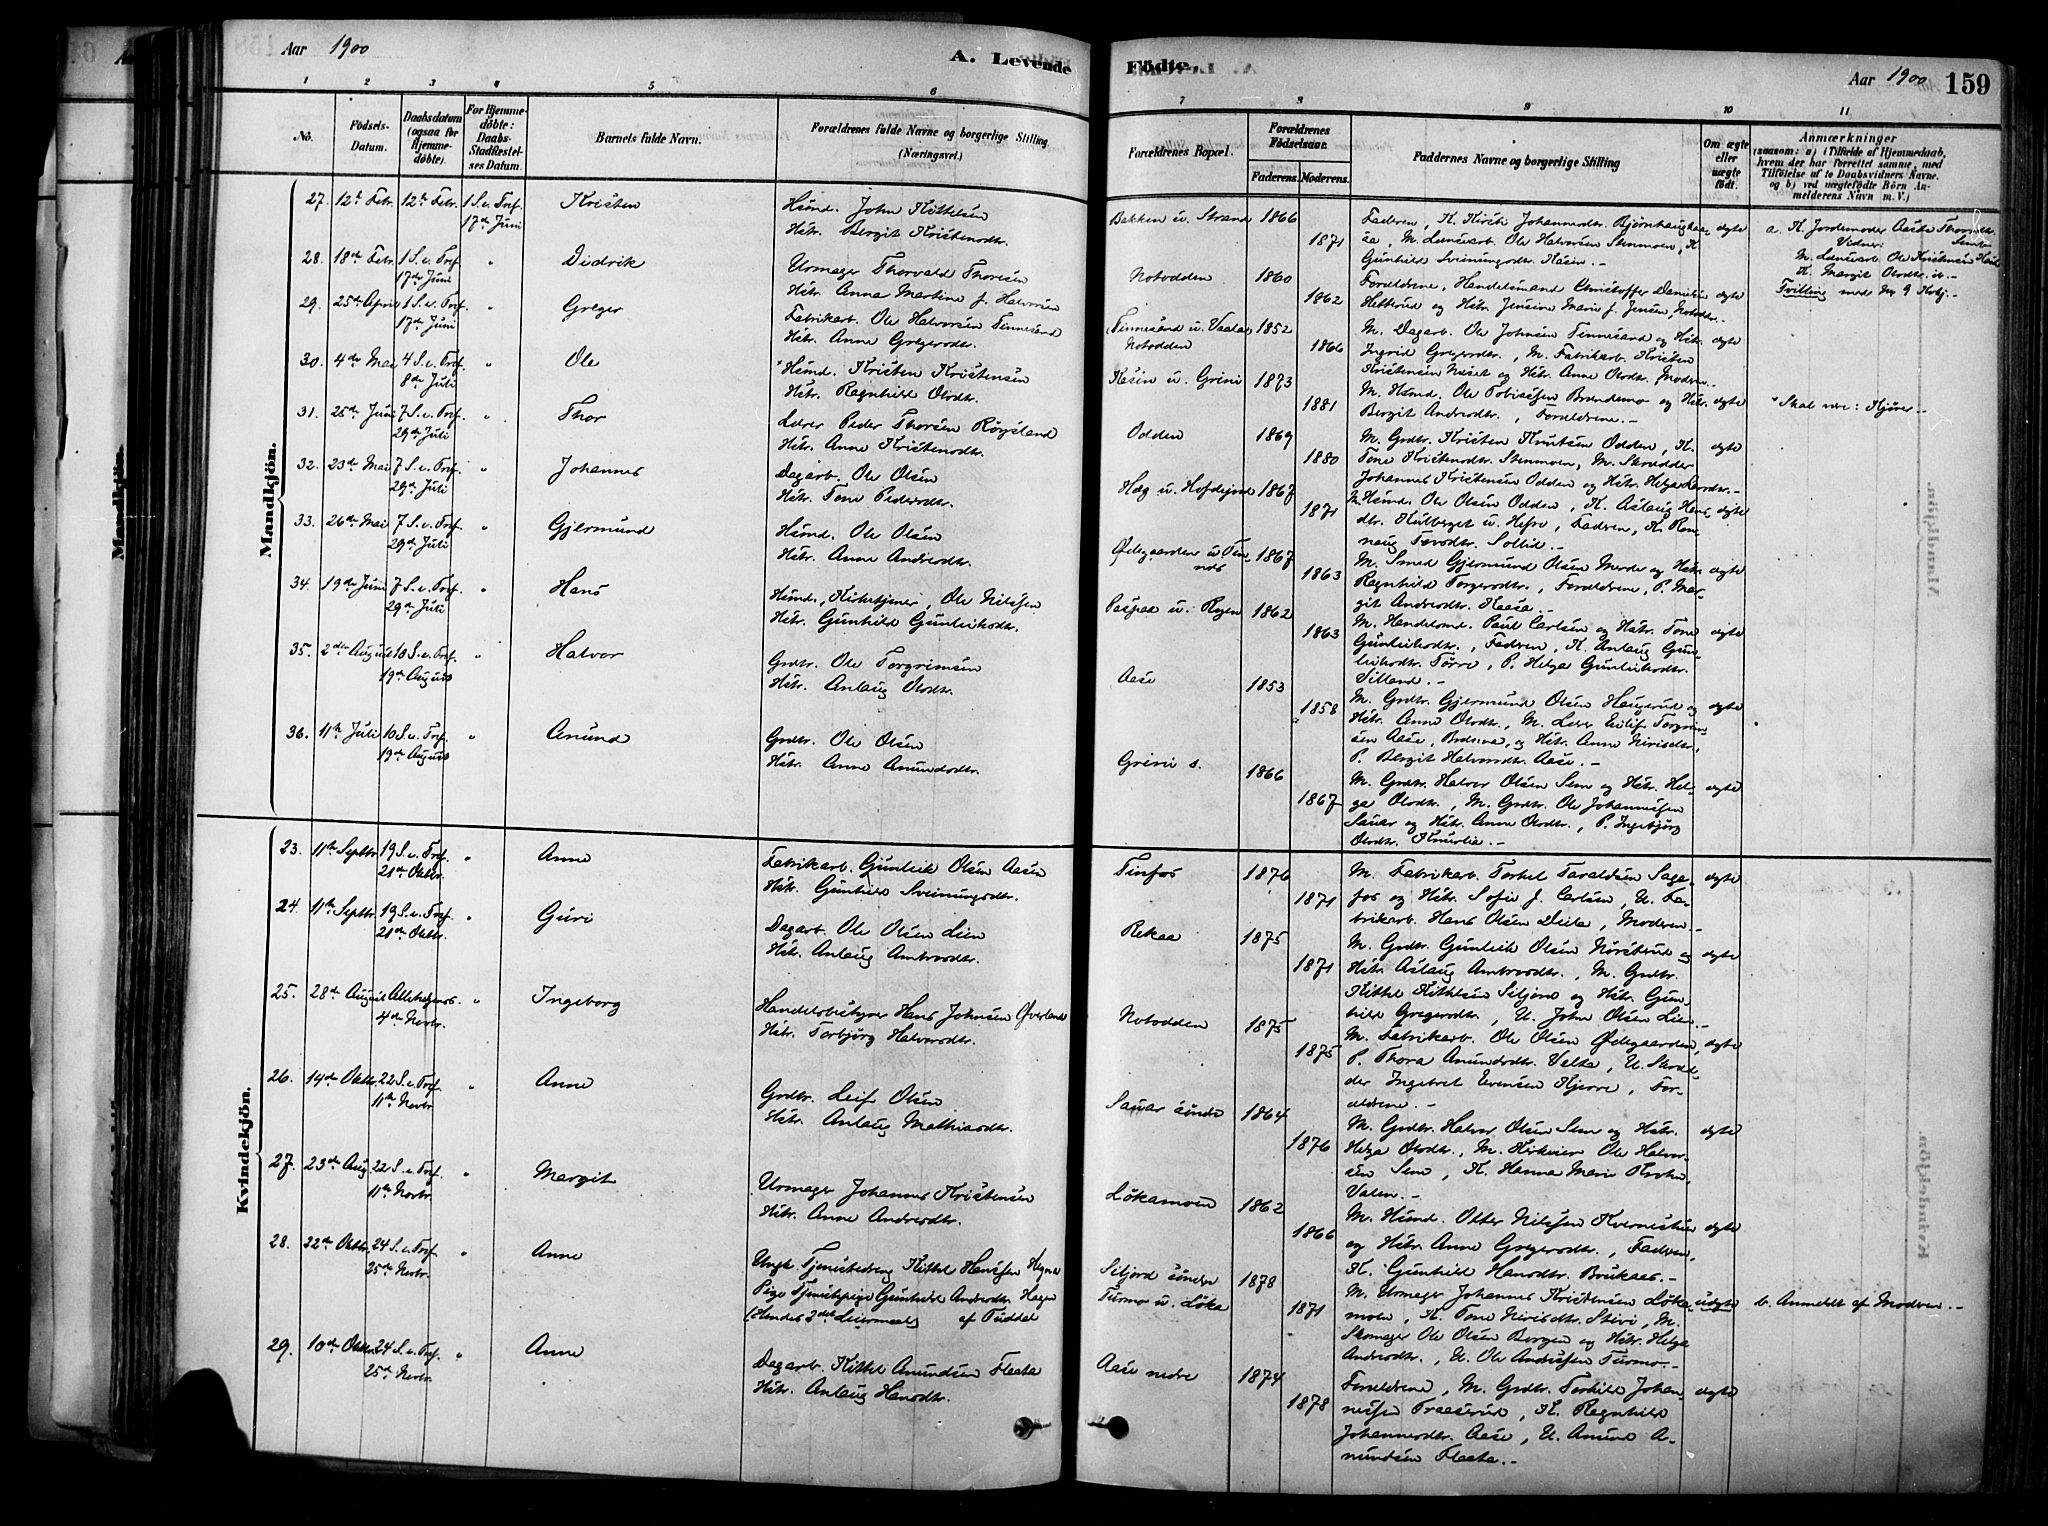 Aar 1900
A. Levende
Fødte.
Aar 1900
159
1 2 3 4 5 6
7 8 9 10 11
No.
Fødsels-Datum.
Daabsdatum (ogsaa for Hjemmedøbte).
For Hjemmedøbte: Daabs-Stadfæstelses Datum.
Barnets fulde Navn.
Forældrenes fulde Navne og borgerlige Stilling (Næringsvei.)
Forældrenes Bopæl.
Forældrenes Fødselsaar.
Faderens. Moderens.
Faddernes Navne og borgerlige Stilling
Om ægte eller uægte født.
Anmærkninger
(saasom: a) i Tilfælde af Hjemmedaab, hvem der har forrettet samme, med Tilføielse af to Daabsvidners Navne, og b) ved uægtefødte Børn Anmelderens Navn m. V.)
Mandkjön.
27. 12te Febr. 12te Febr. 1 S. e. Tref. 17de Juni
Kristen
Hsmd. John Kittelsen
Hstr. Bergit Kristensdtr.
Bakken u. Strand 1866 1871
Faderen, K. Kirsti Johannesdtr. Bjørnhaug
M. Løsarb. Ole Halvorsen Stenmoen, K.
Gunhild Sveinungsdtr. Aasen.-
ægte
a. K. Jordemoder Aaste
Vidner:
Ole Kristensen
K. Margit Olsdtr. ib.-
Tvilling med No 9 Kvkj.-
28. 18de Febr. 1 S. e. Tref. 17de Juni "
Didrik
Urmager Thorvald Thorsen
Hstr. Anna Martine f. Halvorsen
Notodden 1860 1862
Forældrene, Handelsmand Christoffer Danielsen
Hetterud og Hstr. Jensine Marie f. Jensen, Notodden.-
ægte
29. 25de April 1 S. e. Tref. 17de Juni "
Greger
Fabrikarb. Ole Halvorsen Tinnesand
Hstr. Anne Gregersdtr.
Tinnesand u. Vaala
Notodden 1852 1866
M. Dagarb. Ole Johnsen Tinnesand og Hstr.
Ingrid Gregersdtr., M. Fabrikarb. Kristen
Kristensen Næset og Hstr. Anne Olsdtr. Moderen.-
ægte
30. 4de Mai 4 S. e. Tref. 8de Juli "
Ole
*Hsmd. Kristen Kristensen
Hstr. Ragnhild Olsdtr.
Kasin u. Grini 1873 1881
M. Hsmd. Ole Tobiassen Brændemo og Hstr.
Bergit Andersdtr., Forældrene.-
ægte
*Skal være: Kjører.-
31. 25de Juni 7 S. e. Tref. 29de Juli "
Thor
Lærer Peder Thorsen Røysland
Hstr. Anne Kristensdtr.
Odden 1869 1880
M. Grdbr. Kristen Knutsen Odden, K.
Tone Kristensdtr. Stenmoen, M. Skrædder
Johannes Kristensen Odden og Hstr. Helga Larsdtr.-
ægte
32. 23de Mai 7 S. e. Tref. 29de Juli "
Johannes
Dagarb. Ole Olsen
Hstr. Tone Pedersdtr.
Hæg u. 1867 1871
M. Hsmd. Ole Olsen Odden, K. Aslaug Hans-
dtr. u. Hefre, Faderen, K. Ran-
naug Torsdtr. Sollid.-
ægte
33. 26de Mai 7 S. e. Tref. 29de Juli "
Gjermund
Hsmd. Ole Olsen
Hstr. Anne Andersdtr.
Ødegaarden u. Tinnes 1867 1863
M. Smed Gjermund Olsen Merde og Hstr.
Ragnhild Torgersdtr., Forældrene, P. Mar-
git Andersdtr. Kaasa.-
ægte
34. 19de Juni 7 S. e. Tref. 29de Juli "
Hans
Hsmd., Kirketjener, Ole Nilssen
Hstr. Gunhild Gunleiksdtr.
Paspaa u. Rygen 1862 1863
M. Handelsmd. Paul Carlsen og Hstr. Tone
Gunleiksdtr., Faderen, K. Anlaug Gun-
leiksdtr. Tørre, P. Helga Gunleiksdtr.
Silland.-
ægte
35. 2den August 10 S. e. Tref. 19de August "
Halvor
Grdbr. Ole Torgrimsen
Hstr. Anlaug Olsdtr.
Aase 1853 1858
M. Grdbr. Gjermund Olsen Haugerud og
Hstr. Anne Olsdtr., M. Lærer Eilif Torgrim-
sen Aase, og Hstr. Anne Nirisdtr.,
P. Bergit Halvorsdtr. Aase.-
ægte
36. 11te Juli 10 S. e. Tref. 19de August "
Amund
Grdbr. Ole Olsen
Hstr. Anne Amundsdtr.
Grini s. 1866 1867
M. Grdbr. Halvor Olsen Sem og Hstr. Hel-
ga Olsdtr., M. Grdbr. Ole Johannessen
Sauar og Hstr. Anne Olsdtr., P. Ingebjørg
Olsdtr. Knurlia.-
ægte
Kvindekjön.
23. 11te Septbr. 19 S. e. Tref. 21de Oktbr. "
Anne
Fabrikarb. Gunleik Olsen Aasen
Hstr. Gunhild Sveinungsdtr.
Tinfos 1876 1871
M. Fabrikarb. Torkel Taraldsen Saga-
fos og Hstr. Sofie f. Carlsen, U. Fa-
brikarb. Hans Olsen Diela, Moderen.-
ægte
24. 11te Septbr. 19 S. e. Tref. 21de Oktbr. "
Guri
Dagarb. Ole Olsen Lien
Hstr. Anlaug Ambrosdtr.
Rekaa 1875 1871
M. Grdbr. Gunleik Olsen Nørsterud og
Hstr. Aslaug Ambrosdtr., M. Grdbr.
Kittel Kittelsen Siljord og Hstr. Gun-
hild Gregersdtr., U. John Olsen Lien.-
ægte
25. 28de August Allehelgens. 4de Novbr. "
Ingeborg
Handelsbestyrer Hans Johnsen Øverland
Hstr. Torbjørg Halvorsdtr.
Notodden 1875 1875
M. Fabrikarb. Ole Olsen Ødegaarden,
P. Thora Amundsdtr. Valta, U. Skræd-
der Ingebret Evensen Hjerre, For-
ældrene.-
ægte
26. 14de Oktbr. 22 S. e. Tref. 11te Novbr. "
Anne
Grdbr. Leif Olsen
Hstr. Anlaug Mathiasdtr.
Sauar søndre 1864 1876
M. Grdbr. Halvor Olsen Sem og Hstr.
Helga Olsdtr., M. Ole Halvor-
sen Sem, K. Hanna Marie Krohn,
Valen.-
ægte
27. 23de Aug. 22 S. e. Tref. 11te Novbr. "
Margit
Urmager Johannes Kristensen
Hstr. Anne Andersdtr.
Løkamoen 1862 1866
M. Hsmd. Otter Nilssen Kvernestuen
og Hstr. Anne Gregersdtr., Faderen,
K. Gunhild Hansdtr. Brukaas.-
ægte
28. 22de Oktbr. 24 S. e. Tref. 25de Novbr. "
Anne
Ungk. Tjenestedreng Kittel Hanssen Hegna
Pige Tjenestepige Gunhild Andersdtr. Hagen
(Hendes 2det Leiermaal) af Tuddal
Siljord søndre
Turmo u. Løka 1878 1871
M. Urmager Johannes Kristensen Løka-
moen, K. Tone Nirisdtr. Stivi, M.
Skomager Ole Olsen Borgen og Hstr. Helga
Andersdtr., U. Ole Andersen Turmo.-
uægte
b. Anmeldt af Moderen.-
29. 10de Oktbr. 24 S. e. Tref. 25de Novbr. "
Anne
Dagarb. Kittel Amundsen Flaata
Hstr. Anlaug Hansdtr.
Aase nedre 1874 1878
Forældrene, M. Grdbr. Torkild Johan-
nessen Traaserud, K. Ragnhild
Johannesdtr. Aase, U. Amund A-
mundsen Flaata.-
ægte